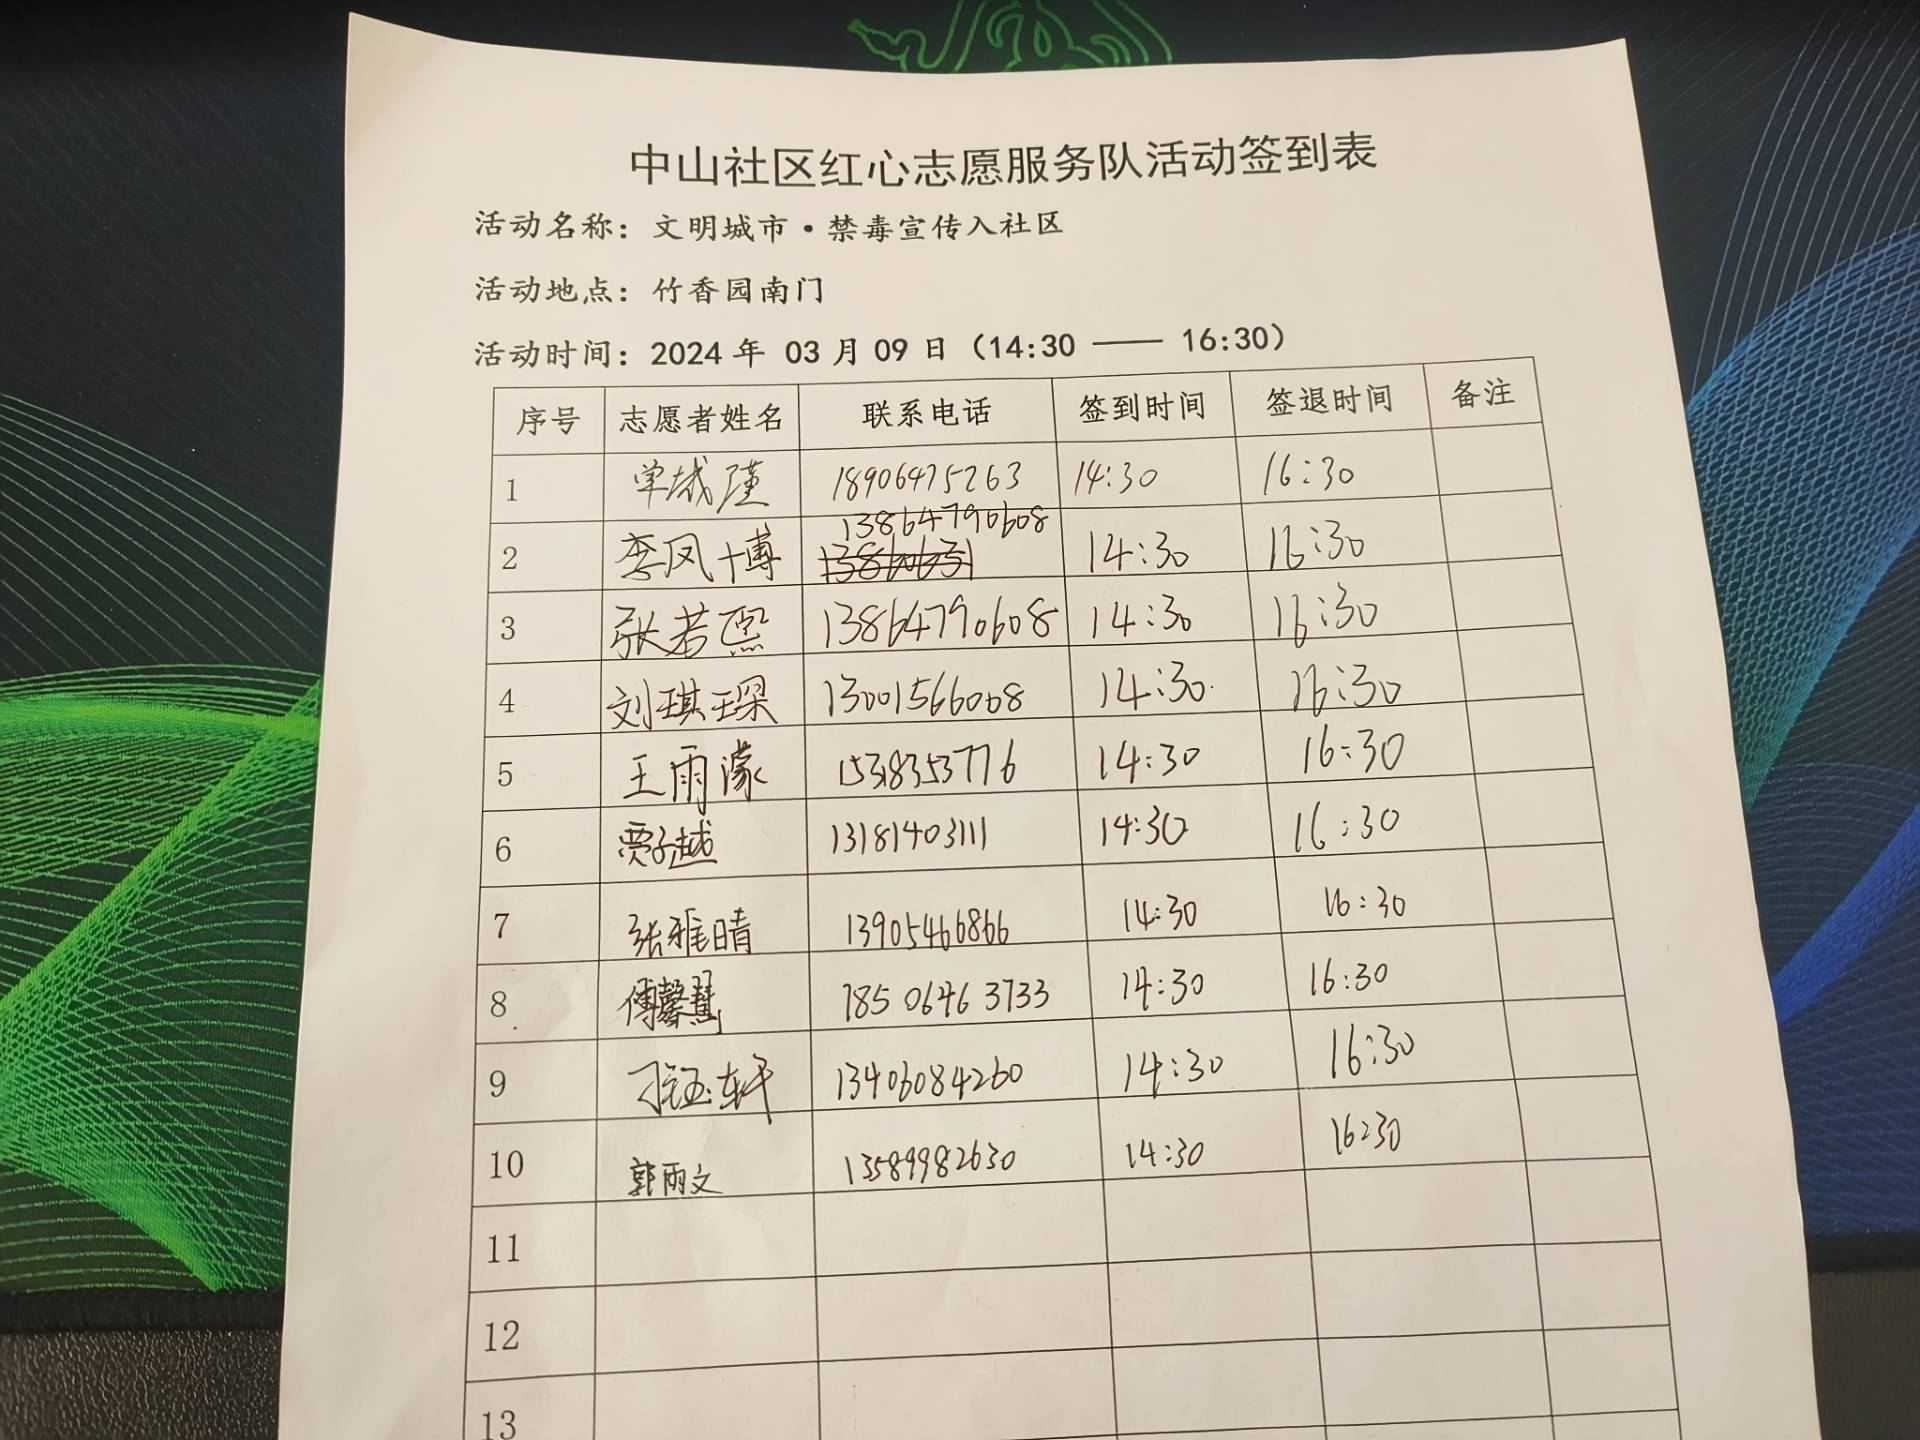 中山社区红心志愿服务队活动签到表
活动名称：文明城市·禁毒宣传入社区
活动地点：竹香园南门
活动时间：2024 年 03 月 09 日（14:30 —— 16:30）
序号 志愿者姓名 联系电话 签到时间 签退时间 备注
1 18906475263 14:30 16:30
2 李风博 13864790608 14:30 16:30
3 张若熙 13864790608 14:30 16:30
4 刘琪琛 13001566008 14:30 16:30
5 王雨濛 15318353776 14:30 16:30
6 贾子越 13181403111 14:30 16:30
7 张雅晴 13905466866 14:30 16:30
8 傅馨慧 185 0646 3733 14:30 16:30
9 刁钰轩 13406084260 14:30 16:30
10 郭雨文 13589982630 14:30 16:30
11
12
13